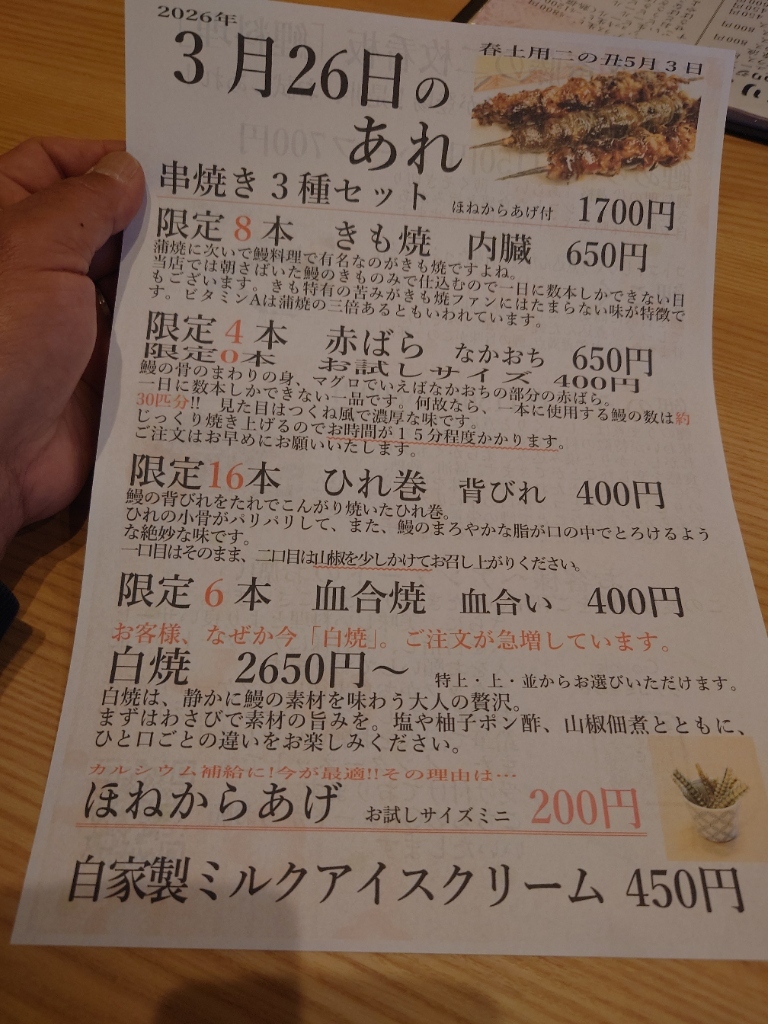 2026年
春土用二の丑5月3日
3月26日の
あれ
串焼き3種セット ほねからあげ付 1700円
限定8本 きも焼 内臓 650円
蒲焼に次いで鰻料理で有名なのがきも焼ですよね。
当店では朝さばいた鰻のきものみで仕込むので一日に数本しかできない日
もございます。きも特有の苦みがきも焼ファンにはたまらない味が特徴で
す。ビタミンAは蒲焼の三倍あるともいわれています。
限定4本 赤ばら なかおち 650円
限定0本 お試しサイズ 400円
鰻の骨のまわりの身、マグロでいえばなかおちの部分の赤ばら。
一日に数本しかできない一品です。何故なら、一本に使用する鰻の数は約
30匹分!! 見た目はつくね風で濃厚な味です。
じっくり焼き上げるのでお時間が15分程度かかります。
ご注文はお早めにお願いいたします。
限定16本 ひれ巻 背びれ 400円
鰻の背びれをたれでこんがり焼いたひれ巻。
ひれの小骨がパリパリして、また、鰻のまろやかな脂が口の中でとろけるよう
な絶妙な味です。
一口目はそのまま、二口目は山椒を少しかけてお召し上がりください。
限定6本 血合焼 血合い 400円
お客様、なぜか今「白焼」。ご注文が急増しています。
白焼 2650円～ 特上・上・並からお選びいただけます。
白焼は、静かに鰻の素材を味わう大人の贅沢。
まずはわさびで素材の旨みを。塩や柚子ポン酢、山椒佃煮とともに、
ひと口ごとの違いをお楽しみください。
カルシウム補給に!今が最適!!その理由は…
ほねからあげ お試しサイズミニ 200円
自家製ミルクアイスクリーム 450円